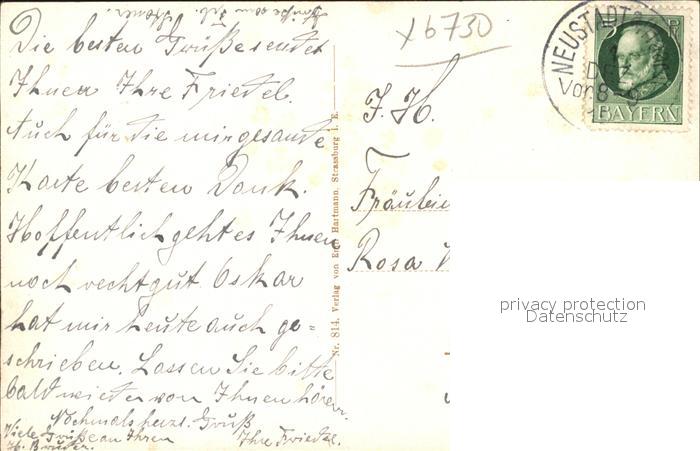 Die besten Grüße sendet
Ihnen Ihre Friedel.
Auch für die mirgesandte
Karte besten Dank.
Hoffentlich geht es Ihnen
noch recht gut. Oskar
hat mir heute auch ge=
schrieben. Lassen Sie bitte
bald wieder von Ihnen hören.
Nochmals herzl. Gruß
Ihre Friedel.
Viele Grüße an Ihren
H. Bruder.
Nr. 814. Verlag von Hartmann, Strassburg i. E.
x6730
NEUSTADT
Vor. 8-9
5 PF
BAYERN
F. H.
Fräulein
Rosa
privacy protection
Datenschutz